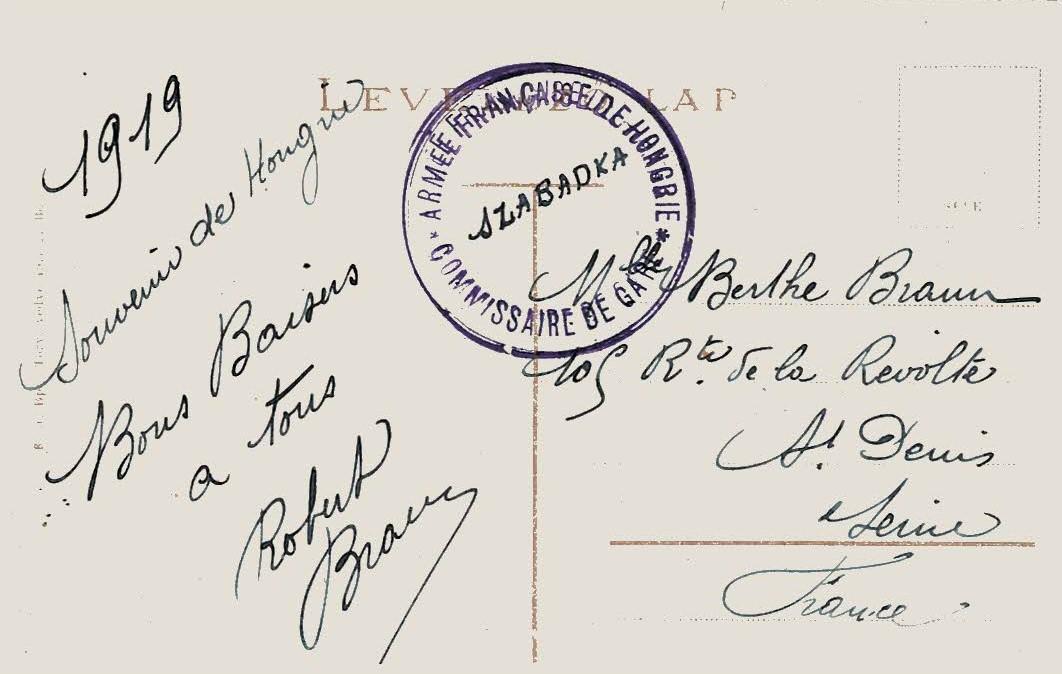 1919
Souvenir de Hongrie
Bons Baisers
a tous
Robert
Braun
LEV LAP
* ARMÉE FRANÇAISE DE HONGRIE *
SZABADKA
COMMISSAIRE DE GARE
Mlle Berthe Braun
105 Rte de la Revolte
St. Denis
Seine
France